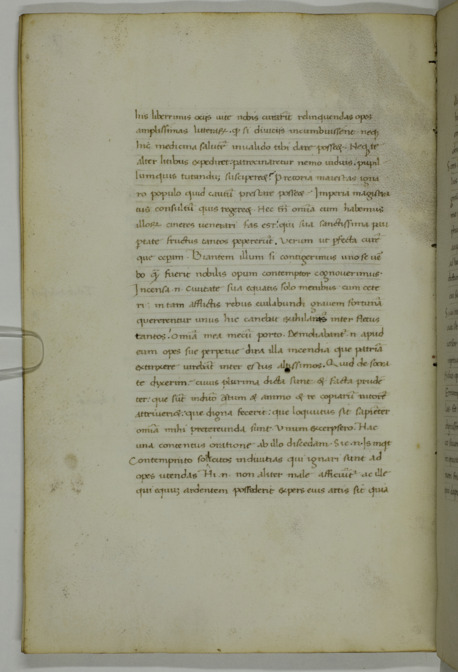 his liberrimis ocijs aute nobis curarit relinquendas opes
amplissimas litteris. ꝙ si diuicijs incumbuissent neqꝫ
hic medicina salutē inualido tibi dare posseꝫ. Neqꝫ te
alter litibus expediret. patrocinaretur nemo uiduis. pupil
lumquis tutandū susciperet? Pretoria maiestas igna
ro populo quid cautū prestare posseꝫ. Imperia magistra
tus consultū quis regereꝫ. Hec tn̄ omīa cum habemus
cineres uenerari fas est: qui sua sanctissima
pietate fructus tantos pepererūt. Verum ut pfecta
que cepim Biantem illum si contigerimus uno se uer
bo ꝙ fuerit nobilis opum contemptor cognouerimus.
Incensa .n. Ciuitate sua equatis solo menibus cum cete
ri in tam afflictis rebus eiulabundi grauem fortunā
quererentur unus hic canebat exhilarans inter fletus
tantos. Omīa mea mecū porto. n apud
eum opes sue perpetue dira illa incendia que patriā
exurere uidebat inter estus altissimos. Quid de socra
te dixerim. cuius plurima dicta sunt & facta prude
ter: que sūt indicio & animo & re
que digna fecerit: que loquutus sit sapiēter
omīa mihi pretereunda sunt. Vnum excerpsero. Hac
una contentus oratione ab illo discedam. Sic .n. Is inqt
Contemnito sollicitos indiuitias qui ignari sunt ad
opes utendas. Hi .n. non aliter male afficiūt ac ille
qui equū ardentem possederit expers eius artis sit quia